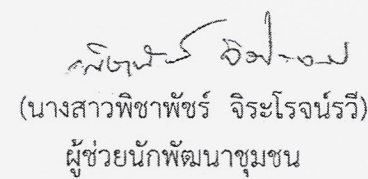 (นางสาวพิชาพัชร์ จิระโรจน์รวี)
ผู้ช่วยนักพัฒนาชุมชน